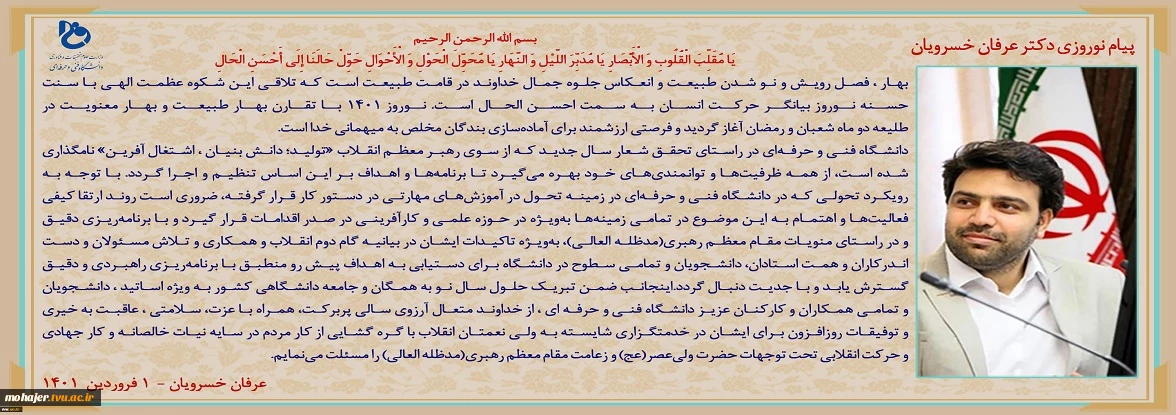 پیام نوروزی دکتر عرفان خسرویان
وزارت علوم تحقیقات و فناوری
دانشگاه فنی و حرفه‌ای
بسم الله الرحمن الرحیم
یَا مُقَلِّبَ الْقُلُوبِ وَ الْأَبْصَارِ یَا مُدَبِّرَ اللَّیْلِ وَ النَّهَارِ یَا مُحَوِّلَ الْحَوْلِ وَ الْأَحْوَالِ حَوِّلْ حَالَنَا إِلَى أَحْسَنِ الْحَالِ
بهار ، فصل رویش و نو شدن طبیعت و انعکاس جلوه جمال خداوند در قامت طبیعت است که تلاقی این شکوه عظمت الهی با سنت
حسنه نوروز بیانگر حرکت انسان به سمت احسن الحال است. نوروز ۱۴۰۱ با تقارن بهار طبیعت و بهار معنویت در
طلیعه دو ماه شعبان و رمضان آغاز گردید و فرصتی ارزشمند برای آماده‌سازی بندگان مخلص به میهمانی خدا است.
دانشگاه فنی و حرفه‌ای در راستای تحقق شعار سال جدید که از سوی رهبر معظم انقلاب «تولید؛ دانش بنیان ، اشتغال آفرین» نامگذاری
شده است، از همه ظرفیت‌ها و توانمندی‌های خود بهره می‌گیرد تا برنامه‌ها و اهداف بر این اساس تنظیم و اجرا گردد. با توجه به
رویکرد تحولی که در دانشگاه فنی و حرفه‌ای در زمینه تحول در آموزش‌های مهارتی در دستور کار قرار گرفته، ضروری است روند ارتقا کیفی
فعالیت‌ها و اهتمام به این موضوع در تمامی زمینه‌ها به‌ویژه در حوزه علمی و کارآفرینی در صدر اقدامات قرار گیرد و با برنامه‌ریزی دقیق
و در راستای منویات مقام معظم رهبری(مدظله العالی)، به‌ویژه تاکیدات ایشان در بیانیه گام دوم انقلاب و همکاری و تلاش مسئولان و دست
اندرکاران و همت استادان، دانشجویان و تمامی سطوح در دانشگاه برای دستیابی به اهداف پیش رو منطبق با برنامه‌ریزی راهبردی و دقیق
گسترش یابد و با جدیت دنبال گردد.اینجانب ضمن تبریک حلول سال نو به همگان و جامعه دانشگاهی کشور به ویژه اساتید ، دانشجویان
و تمامی همکاران و کارکنان عزیز دانشگاه فنی و حرفه ای ، از خداوند متعال آرزوی سالی پربرکت، همراه با عزت، سلامتی ، عاقبت به خیری
و توفیقات روزافزون برای ایشان در خدمتگزاری شایسته به ولی نعمتان انقلاب با گره گشایی از کار مردم در سایه نیات خالصانه و کار جهادی
و حرکت انقلابی تحت توجهات حضرت ولی‌عصر(عج) و زعامت مقام معظم رهبری(مدظله العالی) را مسئلت می‌نمایم.
عرفان خسرویان - ۱ فروردین ۱۴۰۱
mohajer.tvu.ac.ir